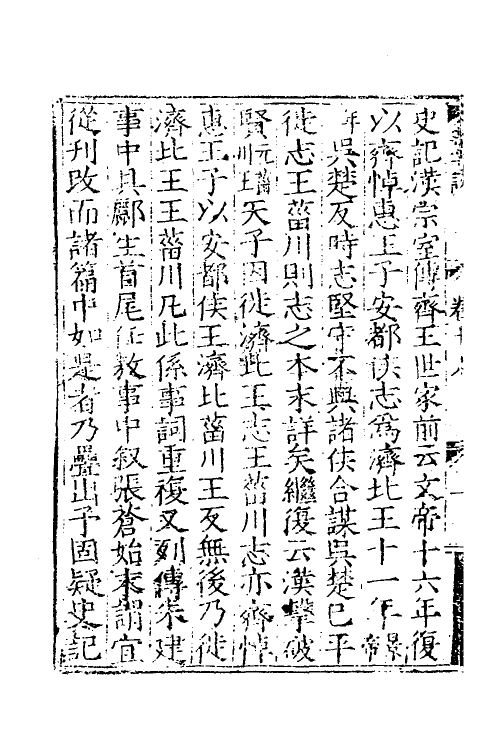 史記漢宗室傳齊王世家前云文帝十六年復
以齊悼惠王子安都侯志為濟北王十一年帝景
年吳楚反時志堅守不與諸侯合謀吳楚已平
徙志王菑川則志之本末詳矣繼復云漢擊破
賢元菑川王天子因徙濟北王志王菑川志亦齊悼
惠王子以安都侯王濟北菑川王反無後乃徙
濟北王王菑川凡此係事詞重複又列傳朱建
事中具酈生首尾任敖事中叙張蒼始末謂宜
從刊改而諸篇中如是者乃疊出予固疑史記